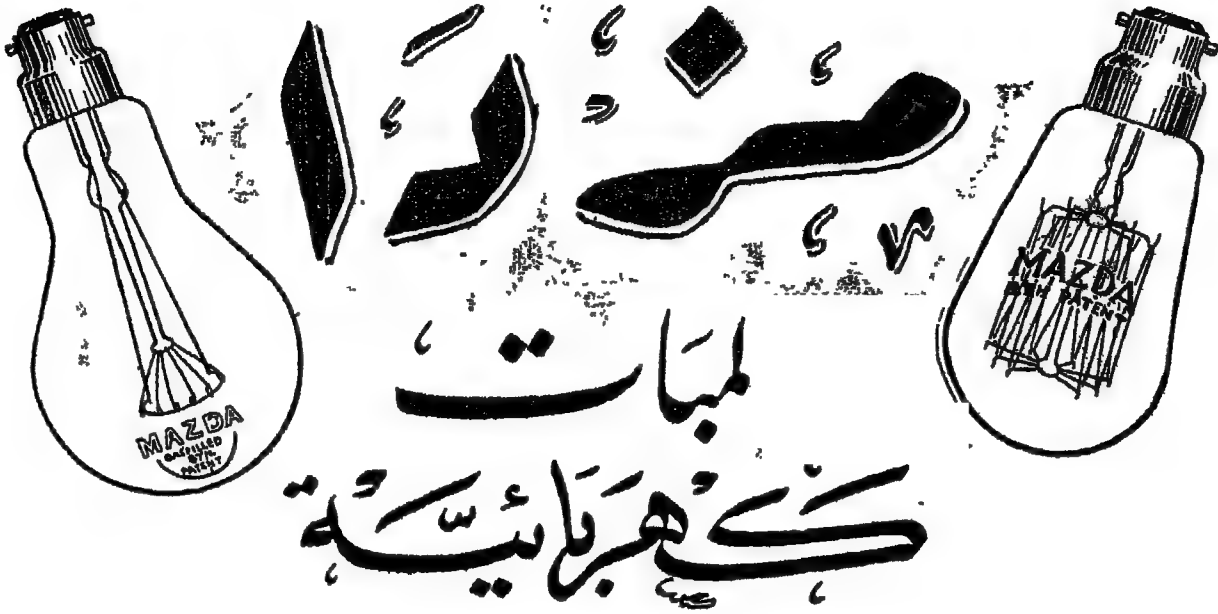 مزدا
لمبات
كهربائيّة
MAZDA
GASFILLED
BTH.
PATENT
MAZDA
BTH PATENT